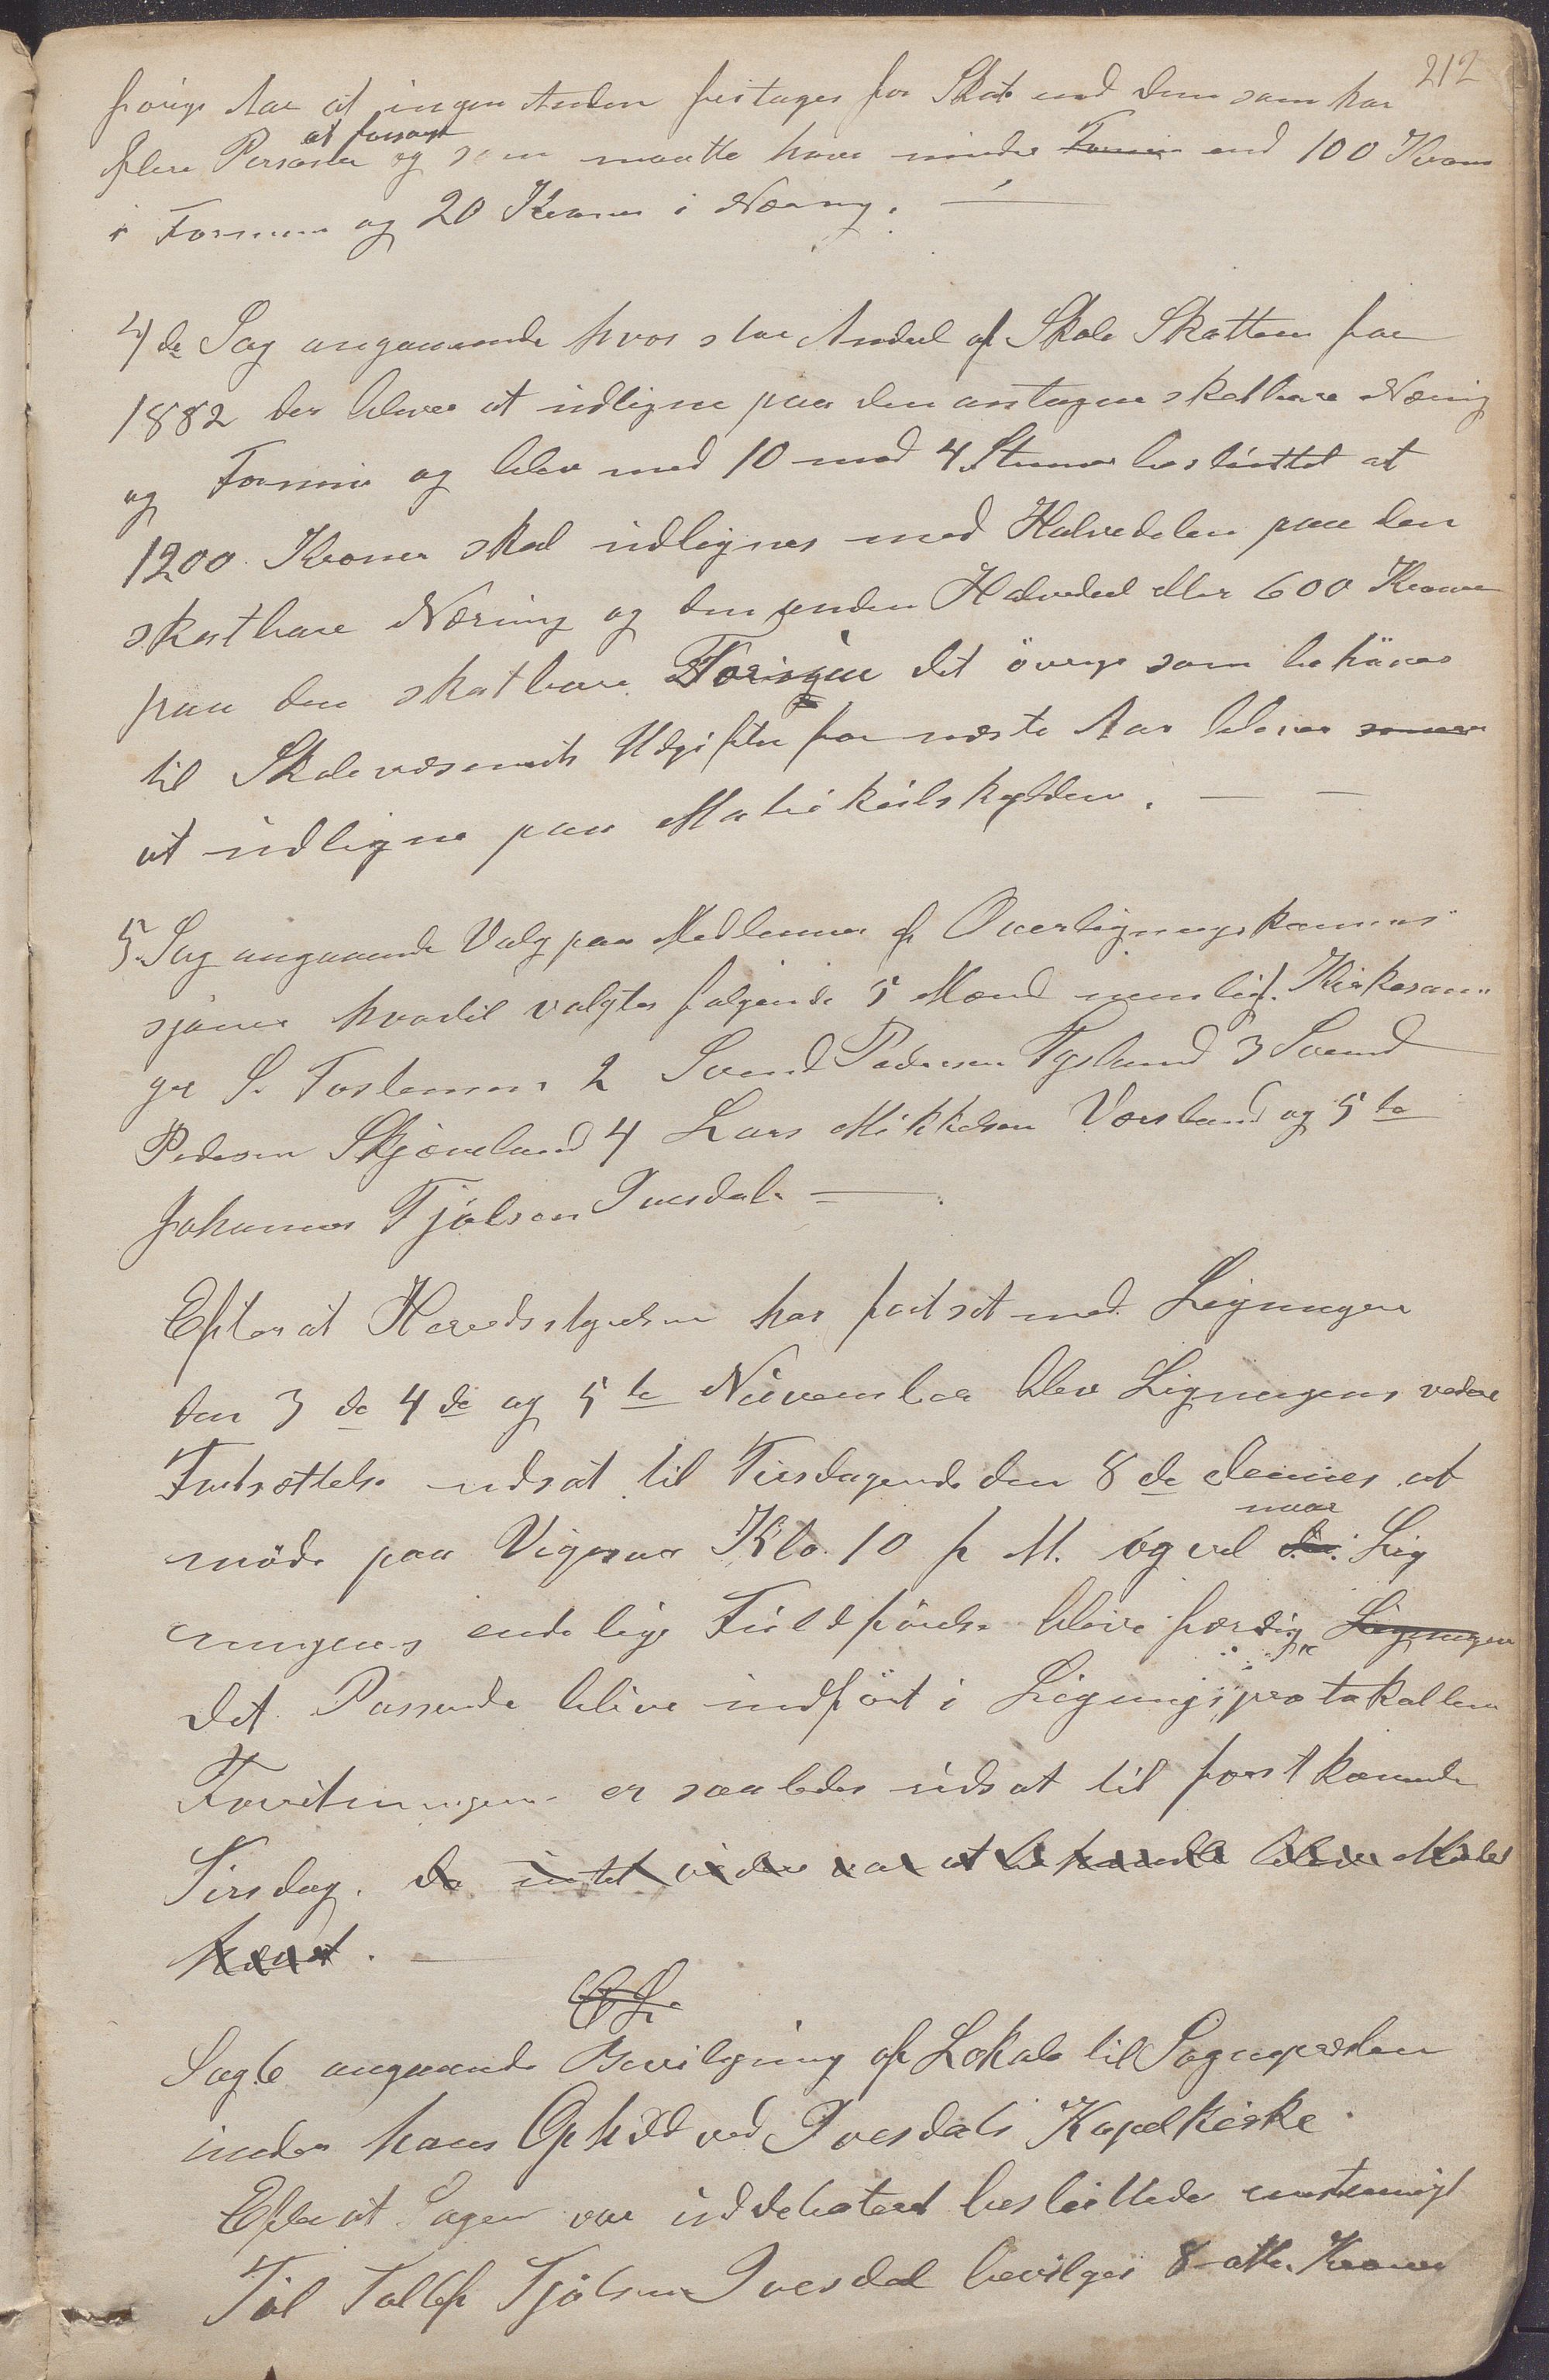 212
forige Aar at ingen Anden fritages for Skat end dem som har
at forsørge
flere Personer og som maatte have mindre Formue end 100 Kroner
i Formue og 20 Kroner i Næring.
4de Sag angaaende hvor stor Andeel af Skole Skatten for
1882 der bliver at udligne paa den antagne skatbare Næring
og Formue og blev med 10 mod 4 Stemmer besluttet at
1200 Kroner skal udlignes med Halvedelen paa den
skatbare Næring og den anden Halvedeel eller 600 Kroner
paa den skatbare det øvrige som behøves
til Skolevæsenets Udgifter for næste Aar bliver
at udligne paa Matrikulskylden.
5. Sag angaaende Valg paa Medlemmer af Overligningskommis"
sjonen hvortil valgtes følgende 5 Mænd nemlig. Kirkesan"
ger S. Tostensen 2 Svend Pedersen Tysland 3 Svend
Pedersen Skjæveland 4 Lars Mikkelsen Værsland og 5te
Johannes Tjølsen Ivesdal.
Efter at Heredsstyrelsen har fortsat med Ligningen
den 3de 4de og 5te November blev Ligningens videre
Fortsættelse udsat til Tirsdagende den 8de dennes at
møde paa Vigesaa Klo. 10 f M. og vil naar Lig
ningens endelige Fuldførelse blive færdig Ligningen
det Passende blive indført i Ligningsprotokollen
Forretningen er saaledes udsat til først komende
Tirsdag. da intet videre var at behandle blev Mødet
hævet.
Sag 6 angaaende Bevilgning af Lokale til Sognepresten
under hans Ophold ved Ivesdals Kapelkirke
Efter at Sagen var uddebateret besluttedes enstemmigt
Til Tollef Tjølsen Ivesdal bevilges 8 otte Kroner